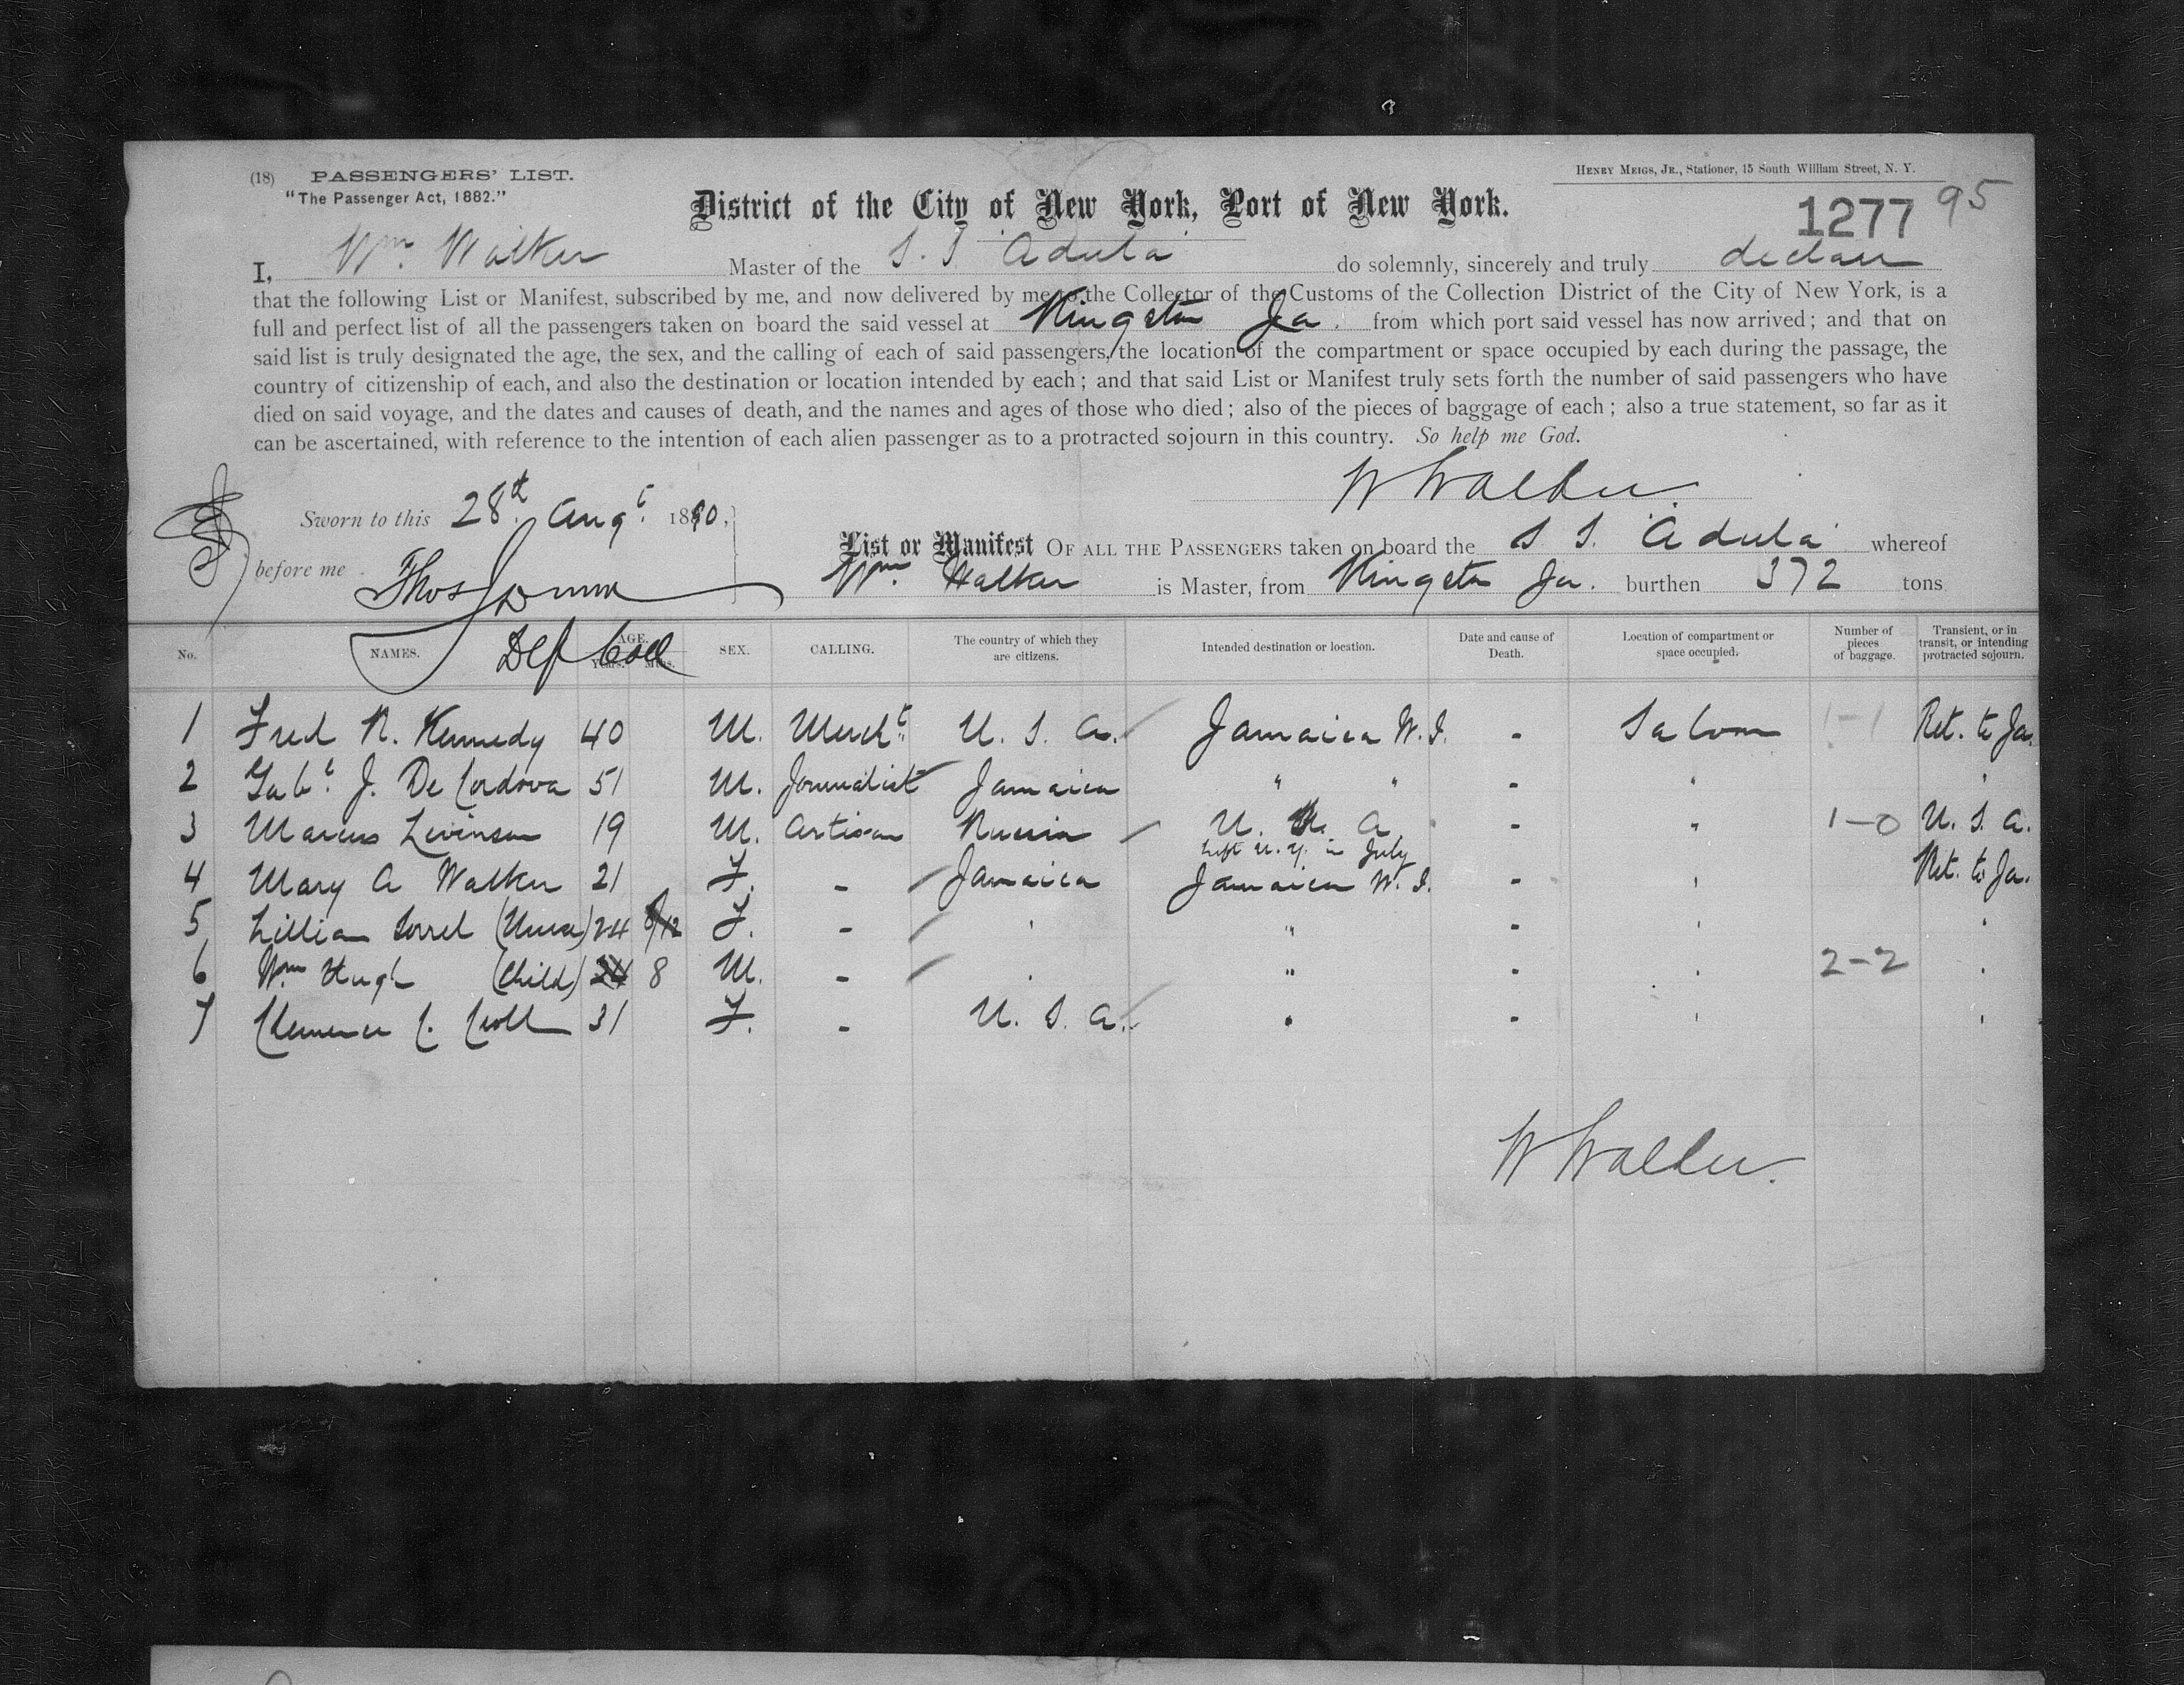 (18) PASSENGERS' LIST.
"The Passenger Act, 1882."
HENRY MEIGS, JR., Stationer, 15 South William Street, N. Y.
District of the City of New York, Port of New York.
1277 95
I, Wm. Walker Master of the S. S Adula do solemnly, sincerely and truly declare
that the following List or Manifest, subscribed by me, and now delivered by me to the Collector of the Customs of the Collection District of the City of New York, is a
full and perfect list of all the passengers taken on board the said vessel at Kingston Ja. from which port said vessel has now arrived; and that on
said list is truly designated the age, the sex, and the calling of each of said passengers, the location of the compartment or space occupied by each during the passage, the
country of citizenship of each, and also the destination or location intended by each; and that said List or Manifest truly sets forth the number of said passengers who have
died on said voyage, and the dates and causes of death, and the names and ages of those who died; also of the pieces of baggage of each; also a true statement, so far as it
can be ascertained, with reference to the intention of each alien passenger as to a protracted sojourn in this country. So help me God.
W Walker.
Sworn to this 28th Augt. 1890,
before me Thos
Dep Coll
List or Manifest OF ALL THE PASSENGERS taken on board the S S. Adula whereof
Wm. Walker is Master, from Kingston Ja. burthen 372 tons
No. NAMES. AGE. Years. Mths. SEX. CALLING. The country of which they are citizens. Intended destination or location. Date and cause of Death. Location of compartment or space occupied. Number of pieces of baggage. Transient, or in transit, or intending protracted sojourn.
1 Fred R. Kennedy 40 M. Mercht. U. S. A. Jamaica W. I. - Saloon 1-1 Ret. to Ja.
2 Gabl. J. De Cordova 51 M. Journalist Jamaica " " - " "
3 Marcus Levinson 19 M. Artisan Russia U. S. A. - " 1-0 U. S. A.
Left N. Y. in July
4 Mary A Walker 21 F. - Jamaica Jamaica W. I. - " Ret. to Ja.
5 Lillian Sorrel (Nurse) 24 8/12 F. - " " - " "
6 Wm Hugh (Child) 24 8 M. - " " - " 2-2 "
7 Clemence C. 31 F. - U. S. A. " - " "
W Walker.